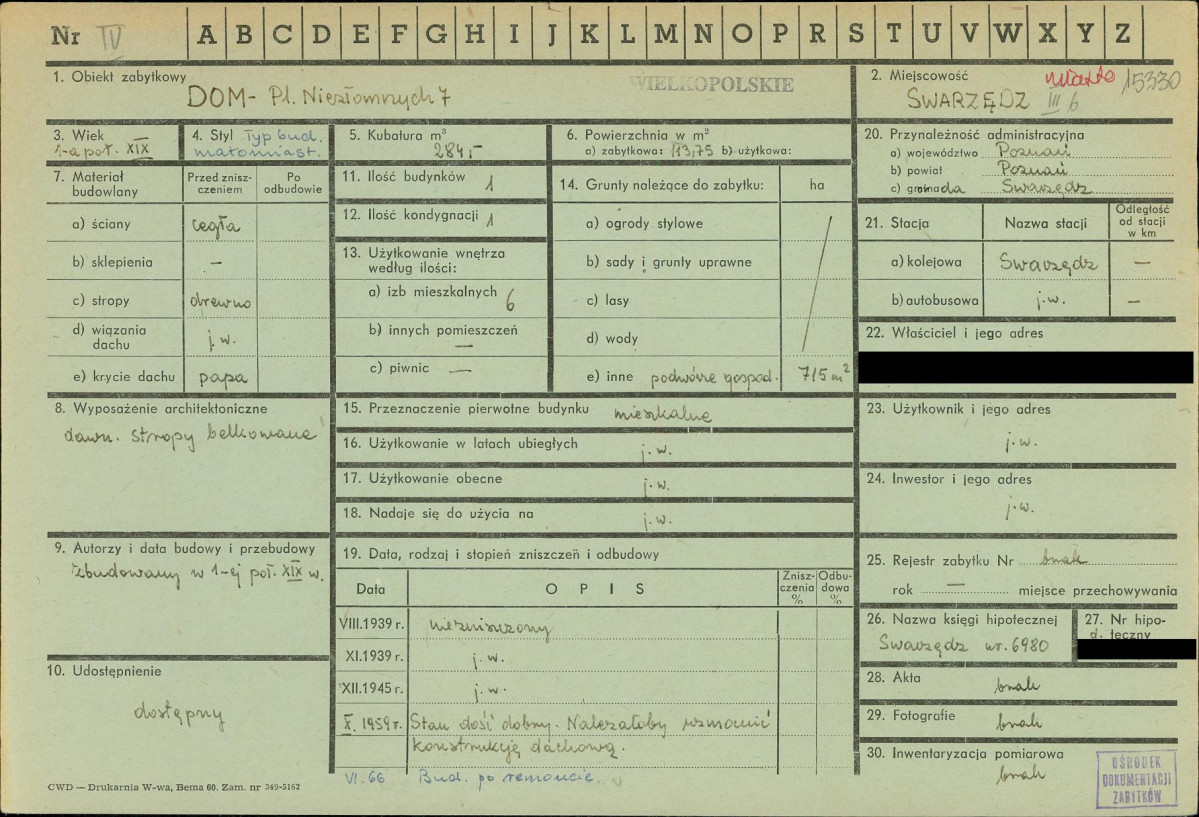 Nr IV A B C D E F G H I J K L M N O P R S T U V W X Y Z
1. Obiekt zabytkowy
WIELKOPOLSKIE
DOM - Pl. Niezłomnych 7
2. Miejscowość miasto 15330
SWARZĘDZ III 6
3. Wiek
1-a poł. XIX
4. Styl Typ bud.
małomiast.
5. Kubatura m³
284,-
6. Powierzchnia w m²
a) zabytkowa: 113,75 b) użytkowa:
7. Materiał budowlany
Przed znisz-czeniem
Po odbudowie
a) ściany cegła
b) sklepienia —
c) stropy drewno
d) wiązania dachu j.w.
e) krycie dachu papa
8. Wyposażenie architektoniczne
dawn. stropy belkowane
9. Autorzy i data budowy i przebudowy
zbudowany w 1-ej poł. XIX w.
10. Udostępnienie
dostępny
11. Ilość budynków 1
12. Ilość kondygnacji 1
13. Użytkowanie wnętrza
według ilości:
a) izb mieszkalnych 6
b) innych pomieszczeń
—
c) piwnic —
14. Grunty należące do zabytku: ha
a) ogrody stylowe
b) sady i grunty uprawne
c) lasy
d) wody
e) inne podwórze gospod. 715 m²
15. Przeznaczenie pierwotne budynku mieszkalne
16. Użytkowanie w latach ubiegłych j.w.
17. Użytkowanie obecne j.w.
18. Nadaje się do użycia na j.w.
19. Data, rodzaj i stopień zniszczeń i odbudowy
Data OPIS Znisz-czenia % Odbu-dowa %
VIII.1939 r. niezniszczony
XI.1939 r. j.w.
XII.1945 r. j.w.
X. 1959 r. Stan dość dobry. Należałoby wzmocnić
konstrukcję dachową.
VI.66 Bud. po remoncie.
20. Przynależność administracyjna
a) województwo Poznań
b) powiat Poznań
c) gromada Swarzędz
21. Stacja Nazwa stacji Odległość od stacji w km
a) kolejowa Swarzędz —
b) autobusowa j.w. —
22. Właściciel i jego adres
23. Użytkownik i jego adres
j.w.
24. Inwestor i jego adres
j.w.
25. Rejestr zabytku Nr brak
rok — miejsce przechowywania
26. Nazwa księgi hipotecznej
Swarzędz nr. 6980
27. Nr hipo-
d. teczny
28. Akta
brak
29. Fotografie
brak
30. Inwentaryzacja pomiarowa
brak
OŚRODEK
DOKUMENTACJI
ZABYTKÓW
CWD — Drukarnia W-wa, Bema 60. Zam. nr 349-5162